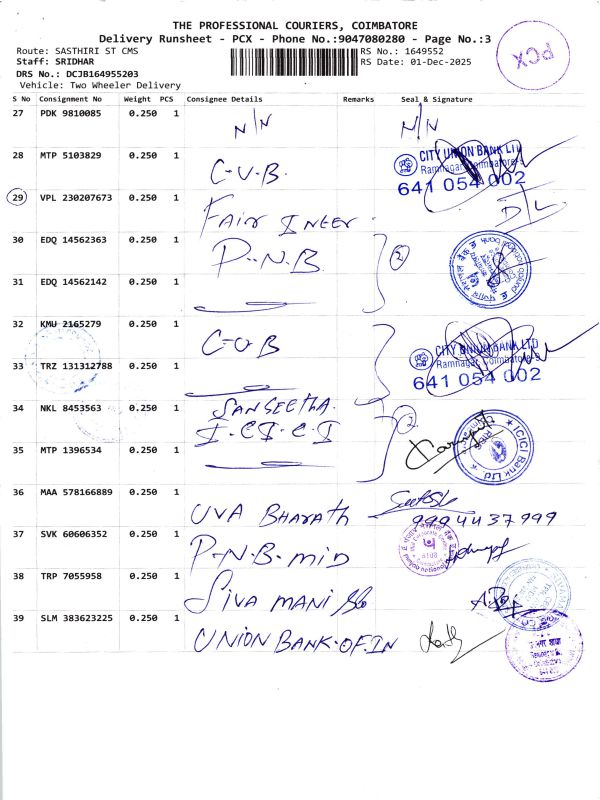 THE PROFESSIONAL COURIERS, COIMBATORE
Delivery Runsheet - PCX - Phone No.:9047080280 - Page No.:3
Route: SASTHIRI ST CMS
RS No.: 1649552
Staff: SRIDHAR
RS Date: 01-Dec-2025
DRS No.: DCJB164955203
Vehicle: Two Wheeler Delivery
PCX
S No Consignment No Weight PCS Consignee Details Remarks Seal & Signature
27 PDK 9810085 0.250 1 N/N N/N
28 MTP 5103829 0.250 1 C-U-B.
CITY UNION BANK LTD
Ramnagar, Coimbatore-9
641 054 002
29 VPL 230207673 0.250 1 Fair Inter. D/L
30 EDQ 14562363 0.250 1 P.-N.B. 2
31 EDQ 14562142 0.250 1
32 KMU 2165279 0.250 1 C-U-B
CITY UNION BANK LTD
Ramnagar, Coimbatore-9
641 054 002
33 TRZ 131312788 0.250 1
34 NKL 8453563 0.250 1 SANGEETHA.
I-CI-C-I 2
ICICI Bank Ltd.
35 MTP 1396534 0.250 1
36 MAA 578166889 0.250 1 UVA Bharath
9994437999
37 SVK 60606352 0.250 1 P-N-B-MID
38 TRP 7055958 0.250 1 SIVA MANI
39 SLM 383623225 0.250 1 UNION BANK-OF.IN